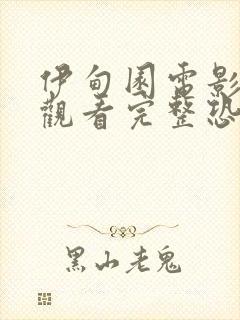 伊甸園電影
觀看完整恐
黑山老鬼